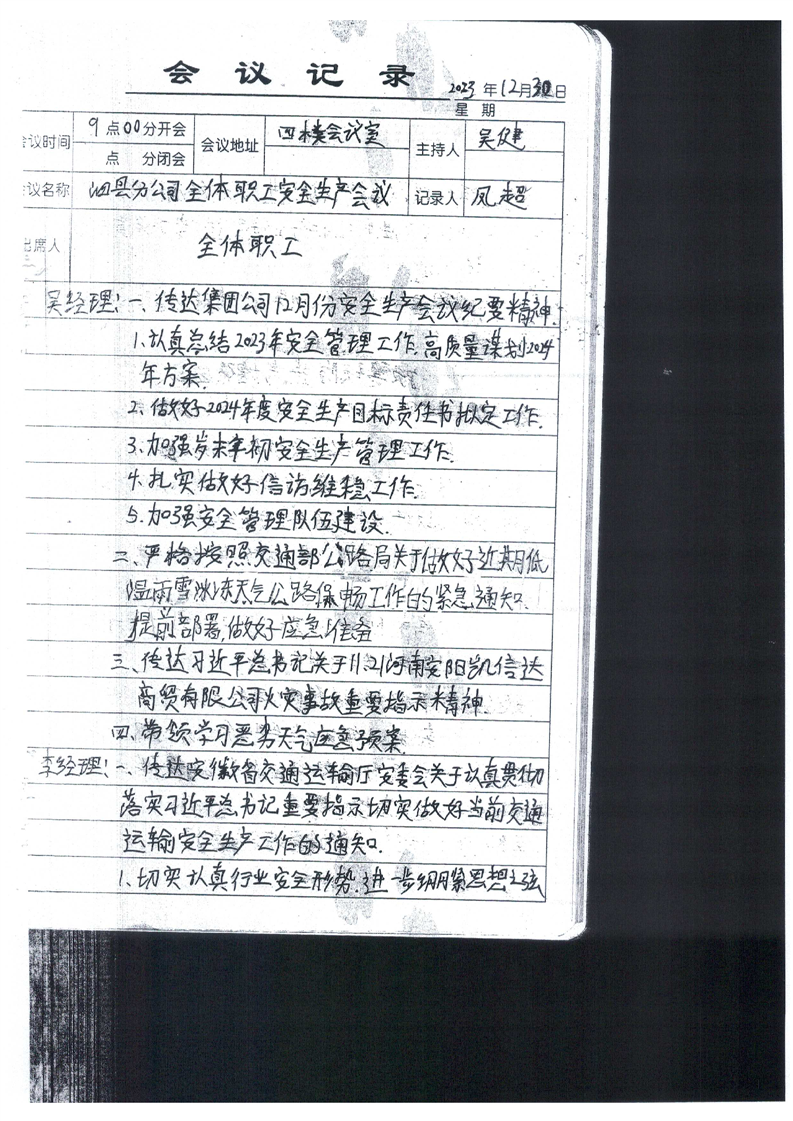 会议记录
2023年12月30日
星期
会议时间 9点00分开会 会议地址 四楼会议室 主持人 吴健
点 分闭会
会议名称 泗县分公司全体职工安全生产会议 记录人 凤超
出席人 全体职工
吴经理：一、传达集团公司12月份安全生产会议纪要精神.
1.认真总结2023年安全管理工作、高质量谋划2024
年方案.
2、做好2024年度安全生产目标责任书拟定工作.
3、加强岁末年初安全生产管理工作.
4.扎实做好信访维稳工作.
5.加强安全管理队伍建设.
二、严格按照交通部公路局关于做好近期低
温雨雪冰冻天气公路保畅工作的紧急通知.
提前部署,做好应急准备
三、传达习近平总书记关于11.21河南安阳凯信达
商贸有限公司火灾事故重要指示精神.
四、带领学习恶劣天气应急预案.
李经理：一、传达安徽省交通运输厅安委会关于认真贯彻
落实习近平总书记重要指示切实做好当前交通
运输安全生产工作的通知.
1.切实认真行业安全形势.进一步绷紧思想之弦